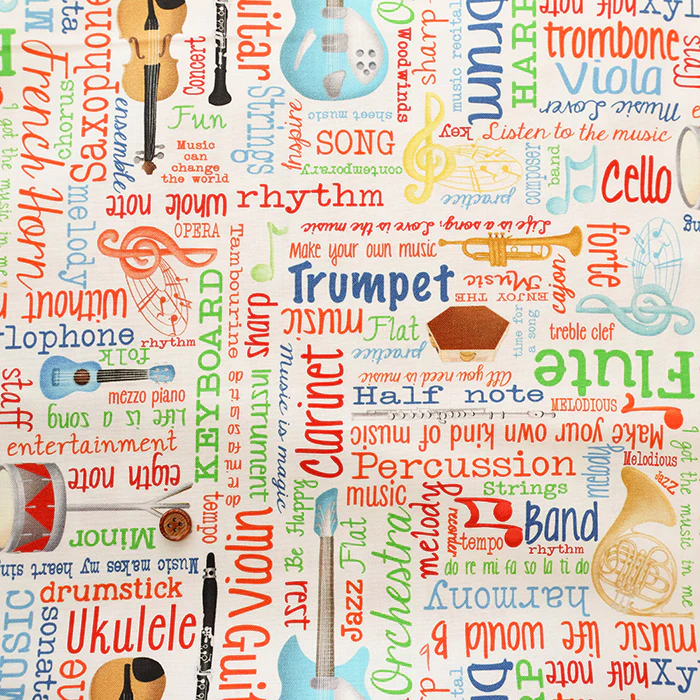 Concert
Fun
Music
can
change
the world
Woodwinds
sharp
music recital
drum
HARP
trombone
Viola
Music Lover
staff
guitar
Strings
Saxophone
ensemble
chorus
French Horn
I got the music in me
melody
sheet music
SONG
contemporary
key
Listen to the music
practice
composer
band
cello
whole note
rhythm
OPERA
Life is a song, Love is the music
Make your own music
Trumpet
ENJOY THE
Music
forte
treble clef
time for
a song
Tambourine
KEYBOARD
sharp
music
Flat
practice
without
rhythm
folk
mezzo piano
Life is a song
staff
entertainment
eigth note
Minor
tempo
do ti la so fa mi re do
Instrument
music is magic
Clarinet
All you need is music
Half note
Flute
MELODIOUS
Make your own kind of music
Percussion
music
Strings
melody
Melodious
Jazz
I got the music in me
melody
recorder
tempo
Band
rhythm
do re mi fa so la ti do
harmony
Orchestra
Be Happy
Flat
Jazz
rest
Violin
Guit
Music makes my heart sin
drumstick
Ukulele
MUSIC
sonata
music life would b
half note
Xy